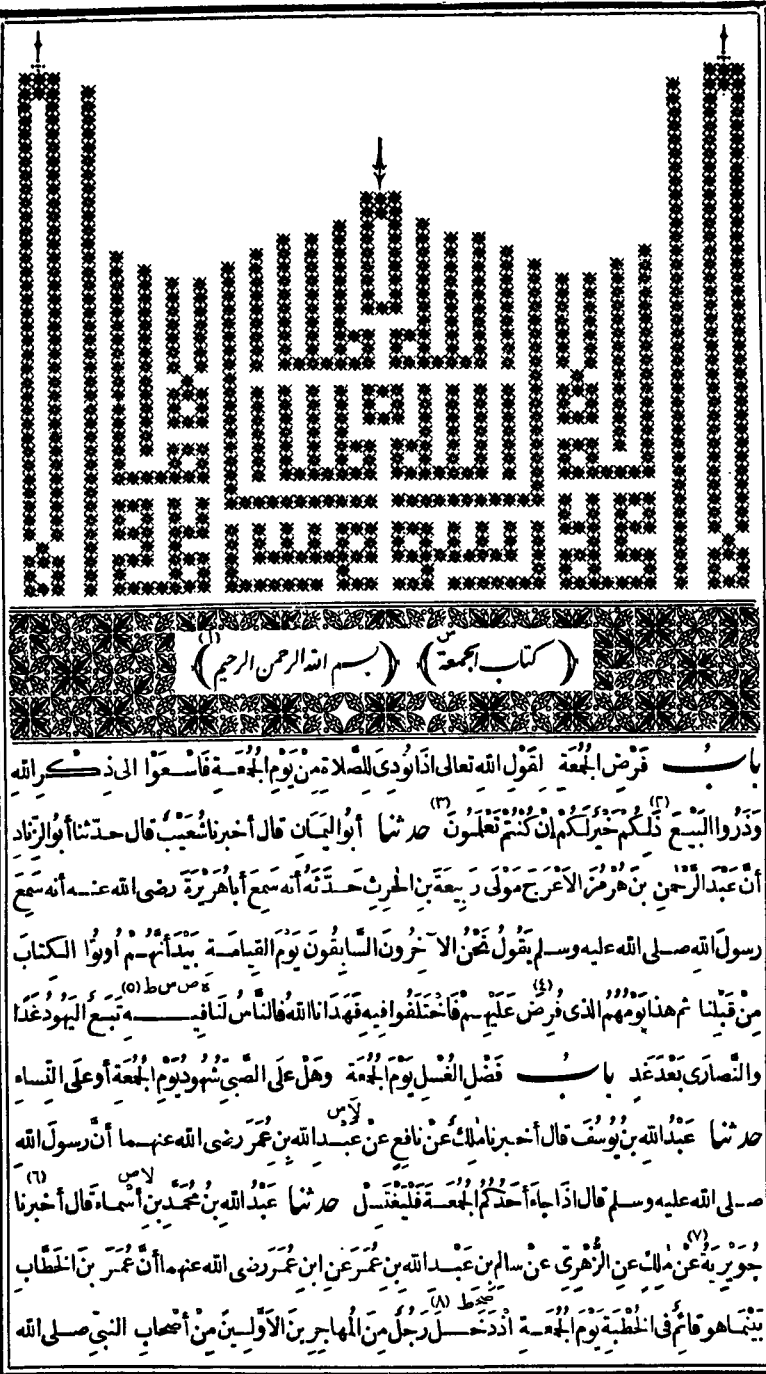 ﴿ كتاب الجمعة ﴾ ﴿ بسم الله الرحمن الرحيم ﴾ (١)
بابُ فَرْضِ الجُمُعَةِ لِقَوْلِ اللهِ تعالى اذَا نُودِىَ لِلصَّلاةِ مِنْ يَوْمِ الجُمُعَةِ فَاسْعَوْا الى ذِكْرِ اللهِ
وَذَرُوا البَيْعَ (٢) ذَلِكُمْ خَيْرٌ لَكُمْ إنْ كُنْتُمْ تَعْلَمُونَ (٣) حدثنا أبُو اليَمَانِ قال أخبرنا شُعَيْبٌ قال حدّثنا أبُو الزِّنادِ
أنَّ عَبْدَ الرَّحْمٰنِ بنَ هُرْمُزَ الأعْرَجَ مَوْلَى رَبِيعَةَ بنِ الحٰرِثِ حَدَّثَهُ أنه سَمِعَ أباهُرَيْرَةَ رضى الله عنه أنه سَمِعَ
رسولَ اللهِ صلى الله عليه وسلم يَقُولُ نَحْنُ الاٰخِرُونَ السَّابِقُونَ يَوْمَ القيامَةِ بَيْدَ أنَّهُمْ أُوتُوا الكتابَ
مِنْ قَبْلِنا ثم هذا يَوْمُهُمُ الذى فُرِضَ (٤) عَلَيْهِمْ فَاخْتَلَفُوا فيهِ فَهَدَانا اللهُ فالنَّاسُ لَنا فيهِ (٥) تَبَعٌ اليَهُودُ غَدًا
والنَّصارَى بَعْدَ غَدٍ بابُ فَضْلِ الغُسْلِ يَوْمَ الجُمُعَةِ وهَلْ علَى الصَّبِىّ شُهُودُ يَوْمِ الجُمُعَةِ أو علَى النِّساءِ
حدثنا عَبْدُ اللهِ بنُ يُوسُفَ قال أخبرنا مٰلِكٌ عنْ نافِعٍ عنْ عَبْدِ اللهِ بنِ عُمَرَ رضى الله عنهما أنَّ رسولَ اللهِ
صلى الله عليه وسلم قال اذَا جاءَ أحَدُكُمُ الجُمُعَةَ فَلْيَغْتَسِلْ حدثنا عَبْدُ اللهِ بنُ مُحَمَّدِ بنِ أسْماءَ قال أخبرنا (٦)
جُوَيْرِيَةُ (٧) عنْ مٰلِكٍ عنِ الزُّهْرِىّ عنْ سالِمِ بنِ عَبْدِ اللهِ بنِ عُمَرَ عنِ ابنِ عُمَرَ رضى الله عنهما أنَّ عُمَرَ بنَ الخَطَّابِ
بَيْنَما هو قائِمٌ فى الخُطْبَةِ يَوْمَ الجُمُعَةِ اذْ دَخَلَ (٨) رَجُلٌ مِنَ المُهاجِرِينَ الأوَّلِينَ مِنْ أصْحابِ النبىّ صلى الله